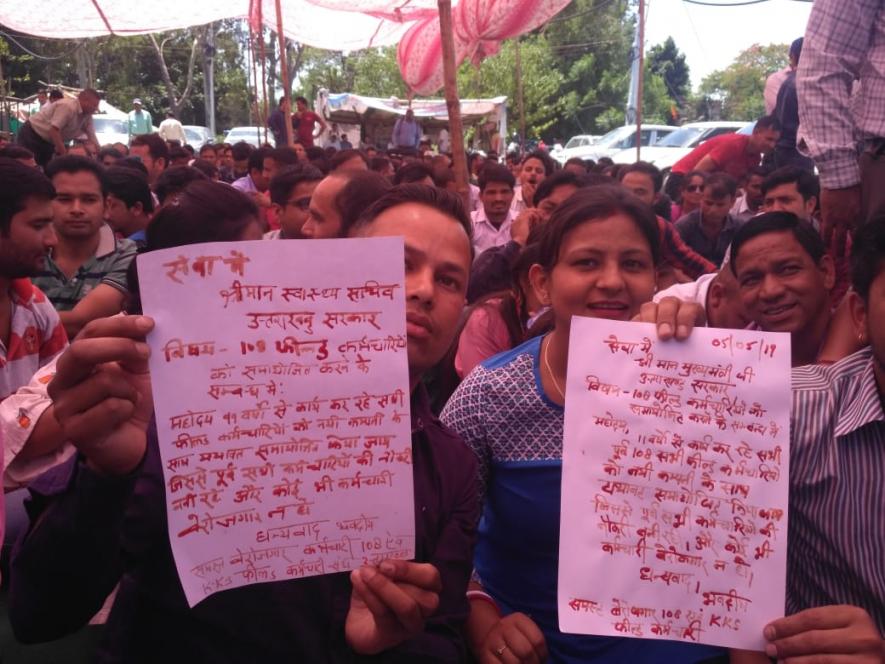 सेवा में
श्रीमान स्वास्थ्य सचिव
उत्तराखण्ड सरकार
विषय - 108 फील्ड कर्मचारियों
को समायोजित करने के
सम्बन्ध में:
महोदय 11 वर्षो से कार्य कर रहे सभी
फील्ड कर्मचारियों को नयी कम्पनी के
साथ यथावत समायोजित किया जाय
जिससे पूर्व सभी कर्मचारियों की नौकरी
बनी रहे और कोई भी कर्मचारी
बेरोजगार न हो
धन्यवाद भवदीय
समस्त बेरोजगार कर्मचारी 108 एवं
KKS फील्ड कर्मचारी संघ उत्तराखण्ड
05/05/19
सेवा में
श्री मान मुख्यमंत्री जी
उत्तराखण्ड सरकार
विषय - 108 फील्ड कर्मचारियों को
समायोजित करने के सम्बन्ध में
महोदय,
11 वर्षो से कार्य कर रहे सभी
पूर्व 108 सभी फील्ड कर्मचारियों
को नयी कम्पनी के साथ
यथावत समायोजित किया जाय
जिससे पूर्व सभी कर्मचारियों की
नौकरी बनी रहे। और कोई भी
कर्मचारी बेरोजगार न हो।
धन्यवाद।
भवदीय
समस्त बेरोजगार 108 एवं KKS
फील्ड कर्मचारी